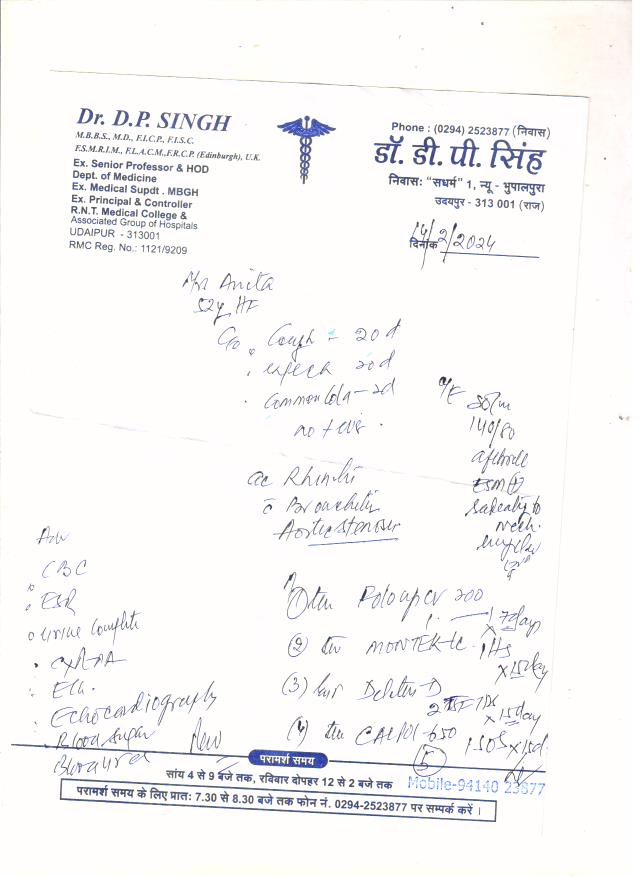 Dr. D.P. SINGH
M.B.B.S., M.D., F.I.C.P., F.I.S.C.
F.S.M.R.I.M., F.L.A.C.M.,F.R.C.P. (Edinburgh), U.K.
Ex. Senior Professor & HOD
Dept. of Medicine
Ex. Medical Supdt . MBGH
Ex. Principal & Controller
R.N.T. Medical College &
Associated Group of Hospitals
UDAIPUR - 313001
RMC Reg. No.: 1121/9209
Phone : (0294) 2523877 (निवास)
डॉ. डी. पी. सिंह
निवास: "सधर्म" 1, न्यू - भुपालपुरा
उदयपुर - 313 001 (राज)
दिनांक 14/2/2024
Mrs Anita
52y HF
C/o Cough - 20d
20d
Common Cold - 2d
no
O/E
80/m
140/80
afebrile
ESM
ac Rhinitis
c Bronchitis
Aortic stenosis
Adv
CBC
ESR
Urine Complete
CXR PA
ECG
Echocardiography
Blood Sugar
Blood Urea
200
x 7 days
(2) MONTEK-LC 1 HS
x 15 day
(3)
2 TSF TDS
x 15 day
(4) CALPOL 650
1 SOS x 15d
(5)
परामर्श समय
सांय 4 से 9 बजे तक, रविवार दोपहर 12 से 2 बजे तक
Mobile-94140 23877
परामर्श समय के लिए प्रात: 7.30 से 8.30 बजे तक फोन नं. 0294-2523877 पर सम्पर्क करें ।